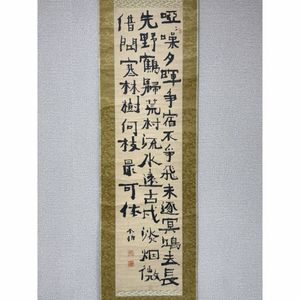 啞噪夕暉爭宿不爭飛未逐冥鴻去長
先野鶴歸荒村流水遠古戍淡烟微
借問寒林樹何枝最可依